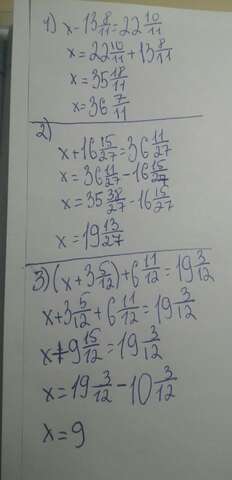 1) x-13 8/11=22 10/11
x=22 10/11+13 8/11
x=35 18/11
x=36 7/11
2)
x+16 15/27=36 11/27
x=36 11/27-16 15/27
x=35 38/27-16 15/27
x=19 13/27
3)(x+3 5/12)+6 11/12=19 3/12
x+3 5/12+6 11/12=19 3/12
x+9 15/12=19 3/12
x=19 3/12-10 3/12
x=9